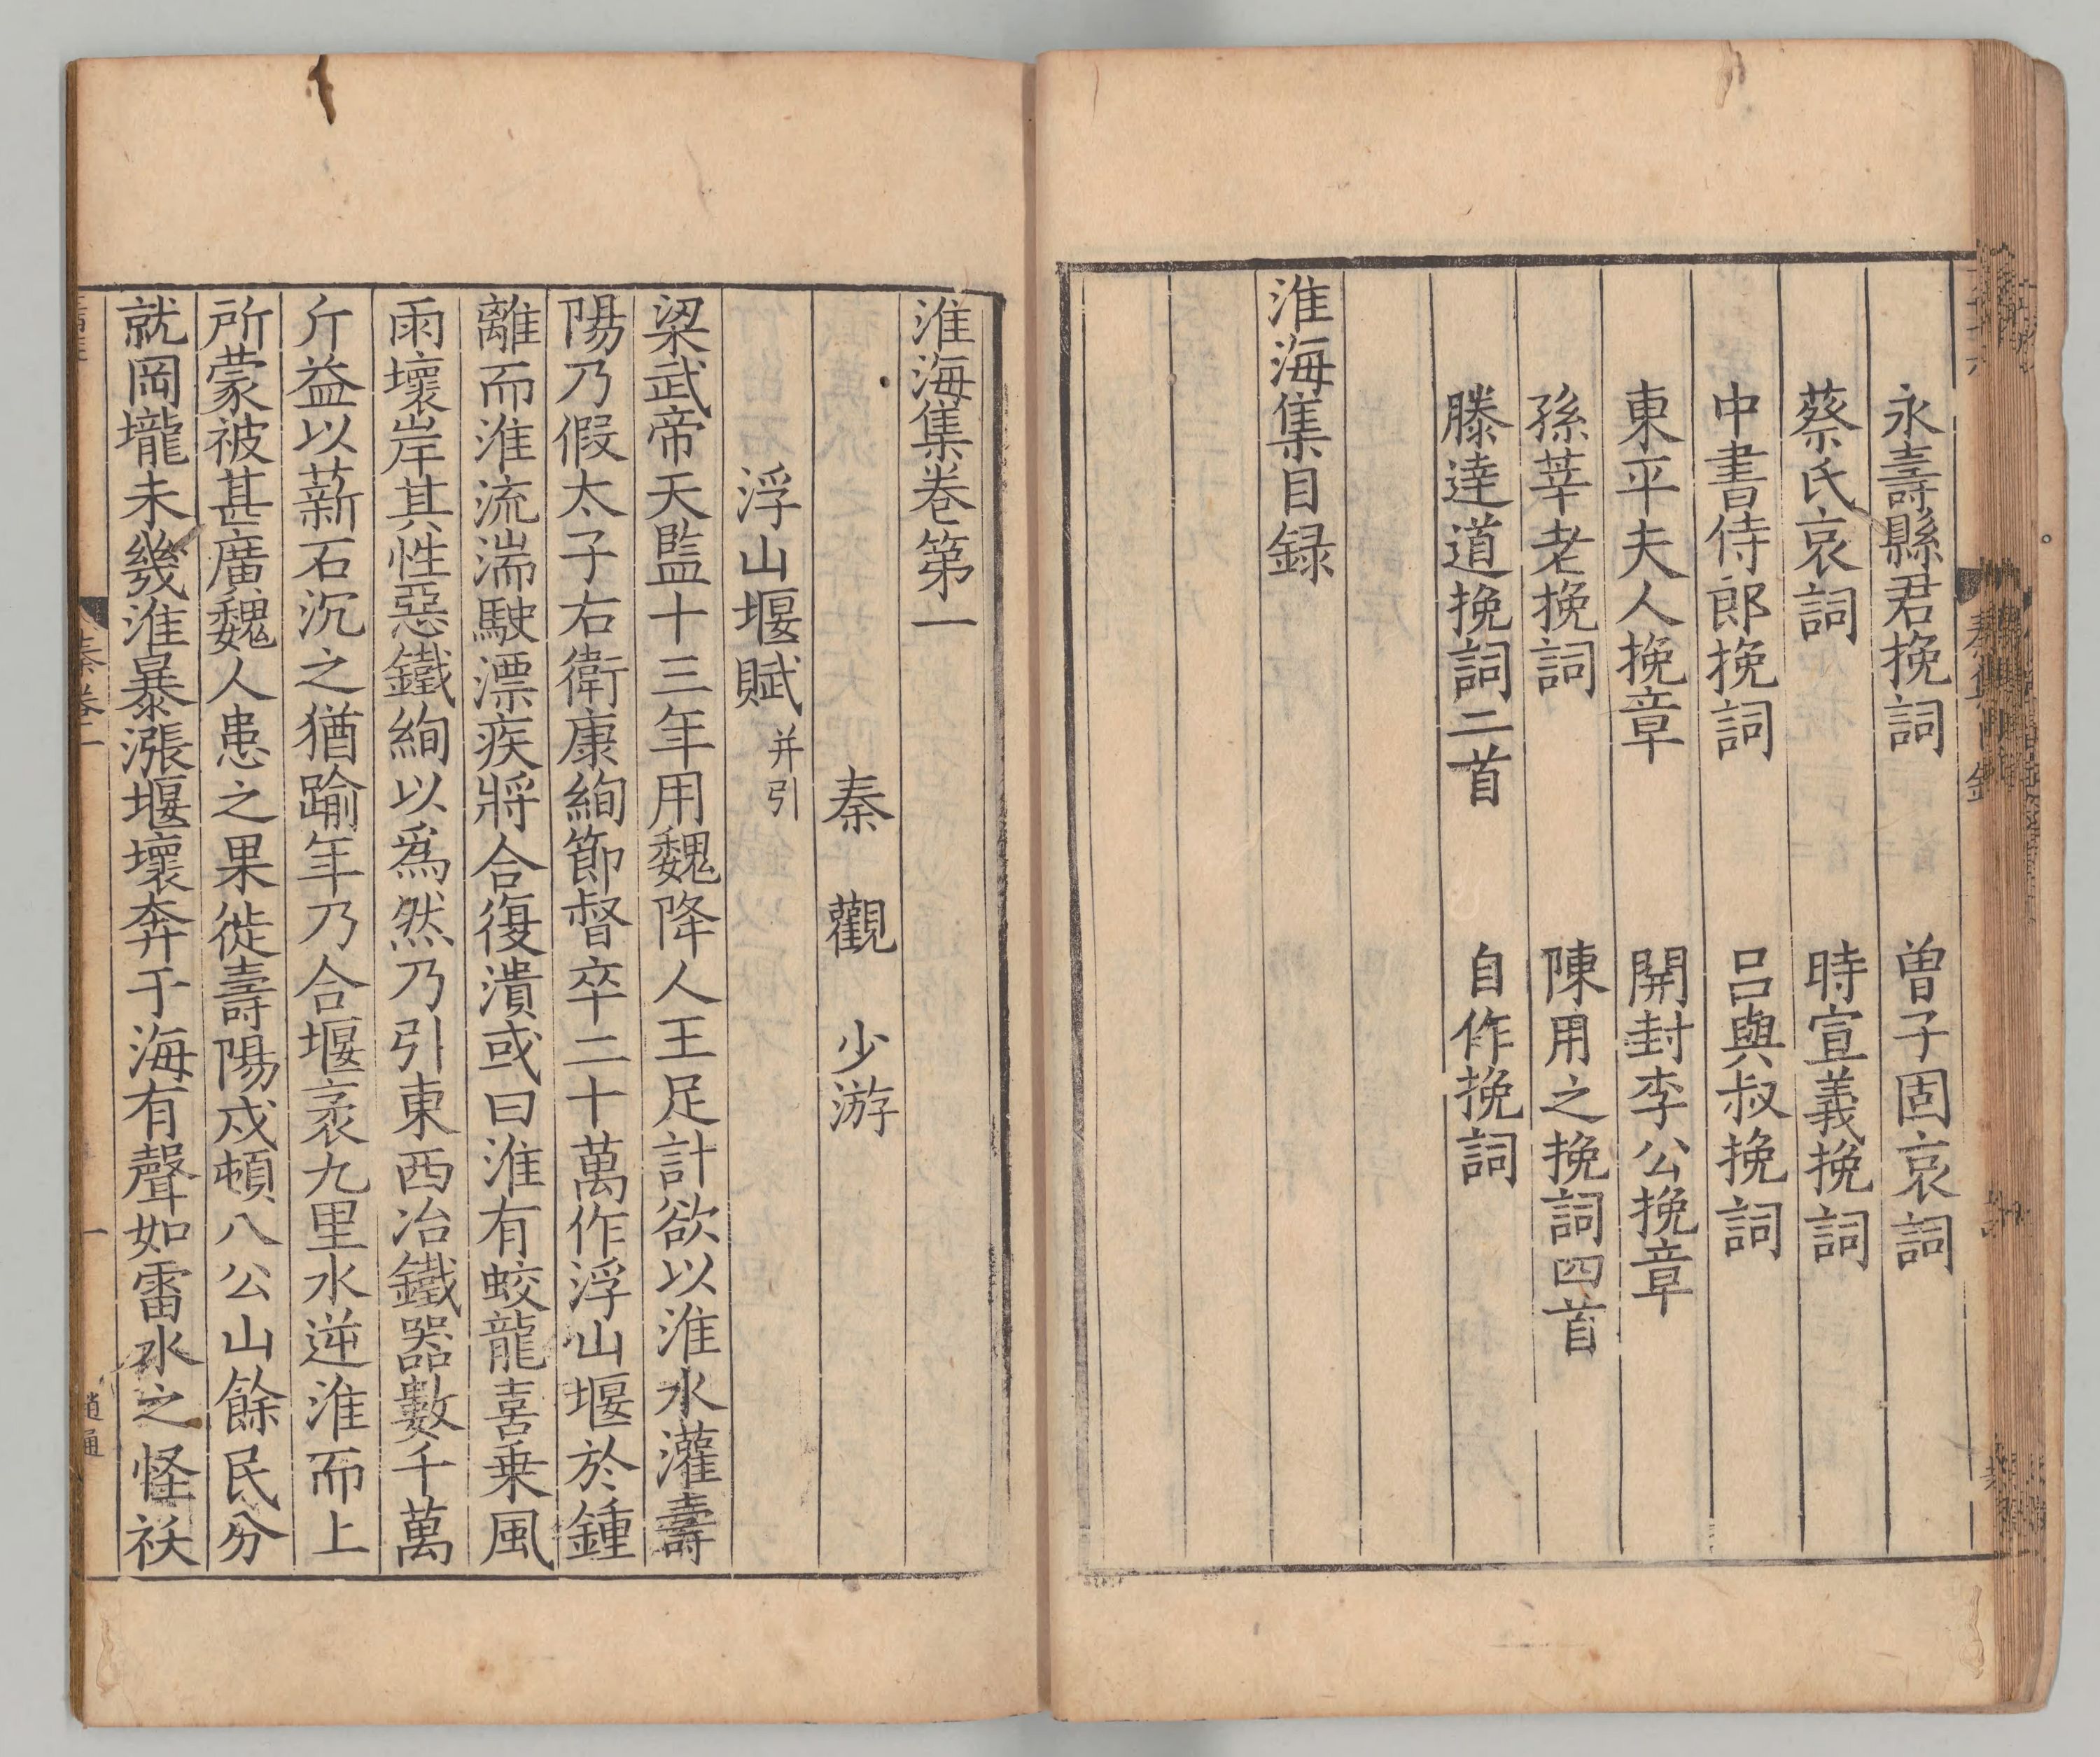 永壽縣君挽詞　曽子固哀詞
蔡氏哀詞　時宣義挽詞
中書侍郎挽詞　呂與叔挽詞
東平夫人挽章　開封李公挽章
孫莘老挽詞　陳用之挽詞四首
滕達道挽詞二首　自作挽詞
淮海集目録
淮海集卷第一
秦觀少游
浮山堰賦并引
梁武帝天監十三年用魏降人王足計欲以淮水灌壽
陽乃假太子右衛康絢節督卒二十萬作浮山堰於鍾
離而淮流湍駛漂疾將合復潰或曰淮有蛟龍喜乗風
雨壞岸其性惡鐵絢以爲然乃引東西冶鐵器數千萬
斤益以薪石沉之猶踰年乃合堰袤九里水逆淮而上
所蒙被甚廣魏人患之果徙壽陽戍頓八公山餘民分
就岡壠未幾淮暴漲堰壞奔于海有聲如雷水之怪祅
秦卷一
一